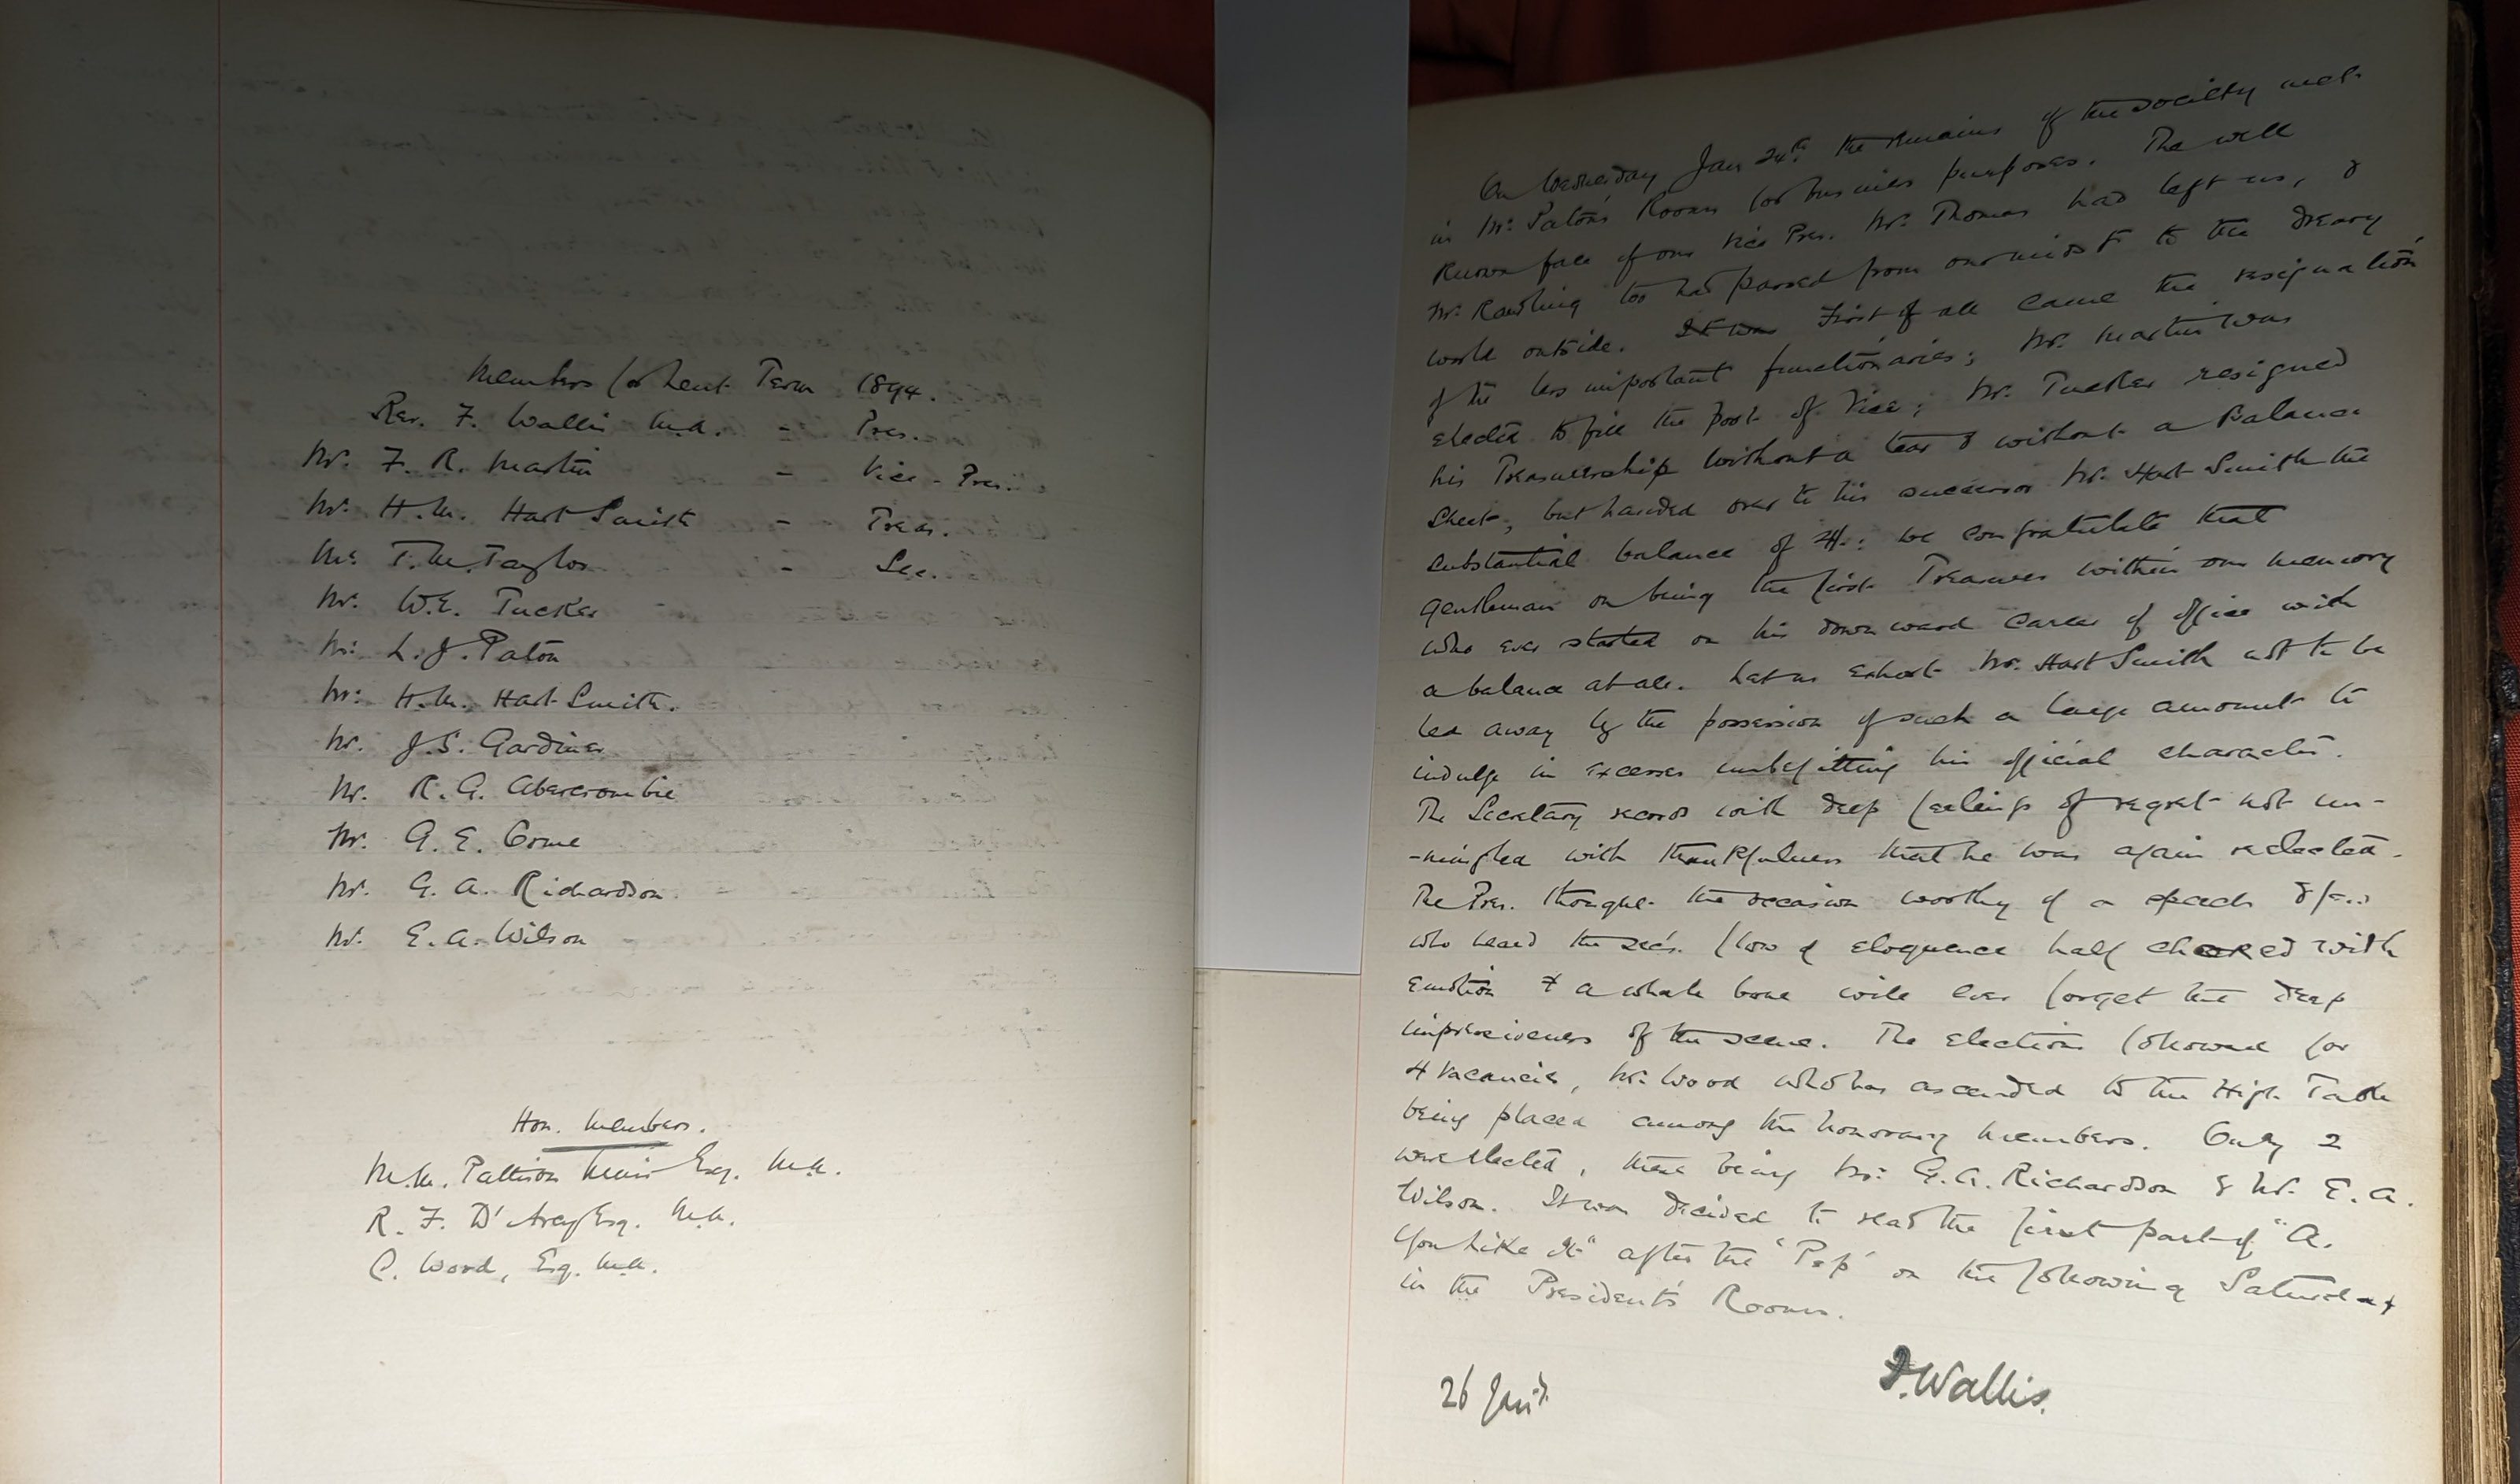 Members for Lent Term 1894.
Rev. F. Wallis M.A. - Pres.
Mr. F. R. Martin - Vice-Pres.
Mr. H.M. Hart Smith - Treas.
Mr. T.M. Taylor - Sec.
Mr. W.E. Tucker
Mr. L.J. Paton
Mr. H.M. Hart-Smith.
Mr. J.S. Gardiner
Mr. R.G. Abercrombie
Mr. G.E. Orme
Mr. G.A. Richardson.
Mr. E.A. Wilson
Hon. Members.
M.M. Pattison Muir Esq. M.A.
R.F. D'Arcy Esq. M.A.
C. Wood, Esq. M.A.
On Wednesday Jan 24th. the remains of the Society met
in Mr. Paton's Rooms for business purposes. The well
known face of our Vice Pres. Mr. Thomas had left us, &
Mr. Rawling too had passed from our midst to the dreary
world outside. It was First of all came the resignation
of the less important functionaries; Mr. Martin was
elected to fill the post of Vice; Mr. Tucker resigned
his Treasurership without a tear & without a Balance
Sheet, but handed over to his successor Mr. Hart Smith the
substantial balance of 4/.: we congratulate that
gentleman on being the first Treasurer within our memory
who ever started on his downward career of office with
a balance at all. Let us exhort Mr. Hart Smith not to be
led away by the possession of such a large amount to
indulge in excesses unbefitting his official character.
The Secretary records with deep feelings of regret not un-
-mingled with thankfulness that he was again reelected.
The Pres. thought the occasion worthy of a speech & few
who heard the Sec's. flow of eloquence half choked with
emotion & a whale bone will ever forget the deep
impressiveness of the scene. The elections followed for
4 vacancies, Mr. Wood who has ascended to the High Table
being placed among the honorary members. Only 2
were elected, these being Mr. G.A. Richardson & Mr. E.A.
Wilson. It was decided to read the first part of "As
You Like It" after the 'Pop' on the following Saturday
in the President's Rooms.
26 Jan.
F. Wallis.